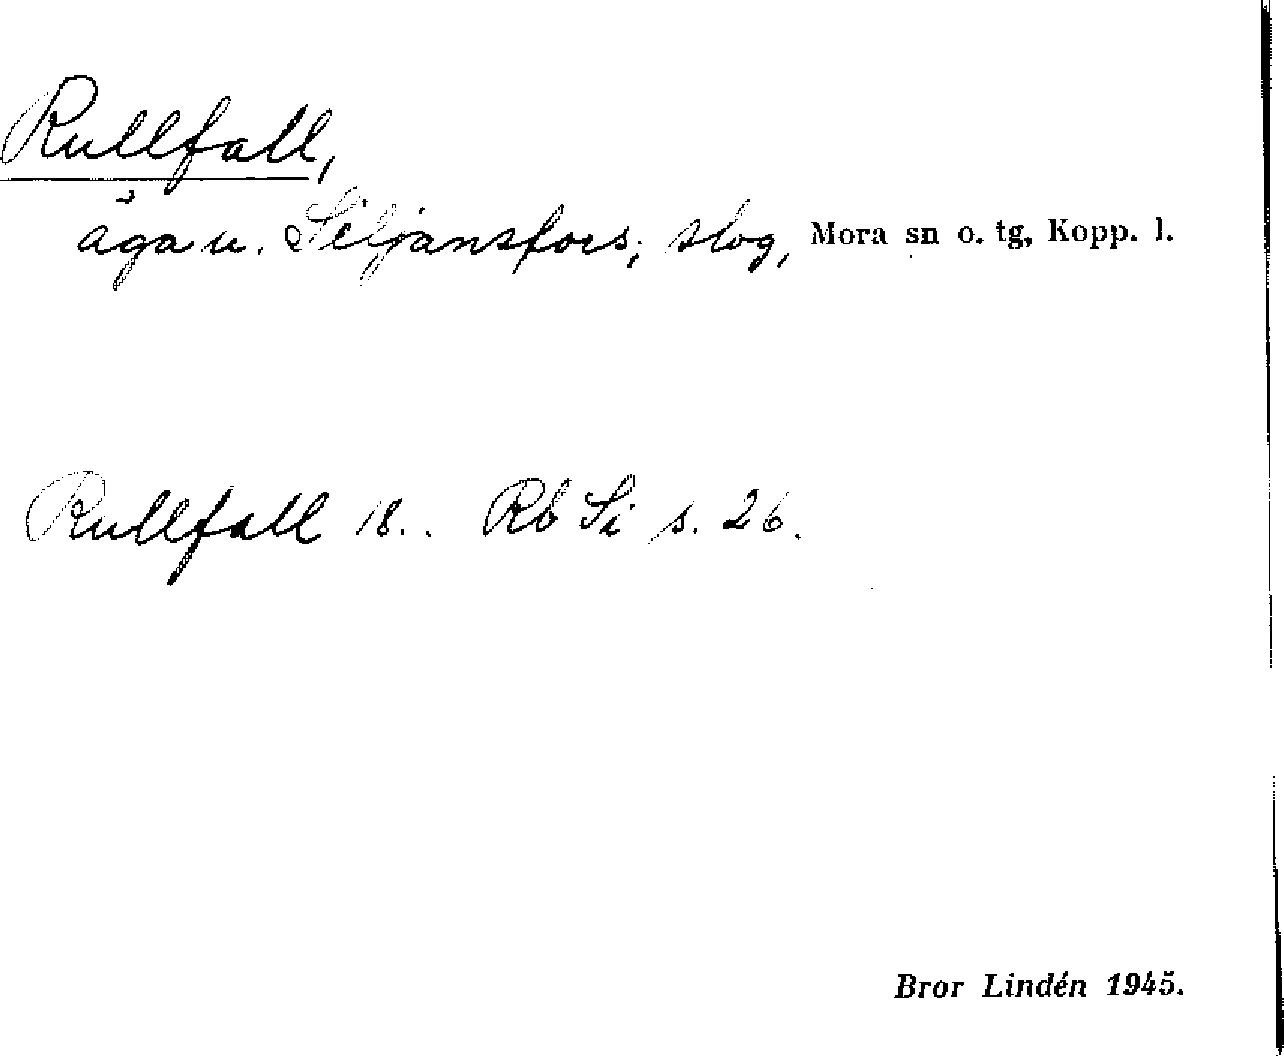 Rullfall,
äga u. Siljansfors; slog, Mora sn o. tg, Kopp. l.
Rullfall 18.. Rb Si s. 26.
Bror Lindén 1945.